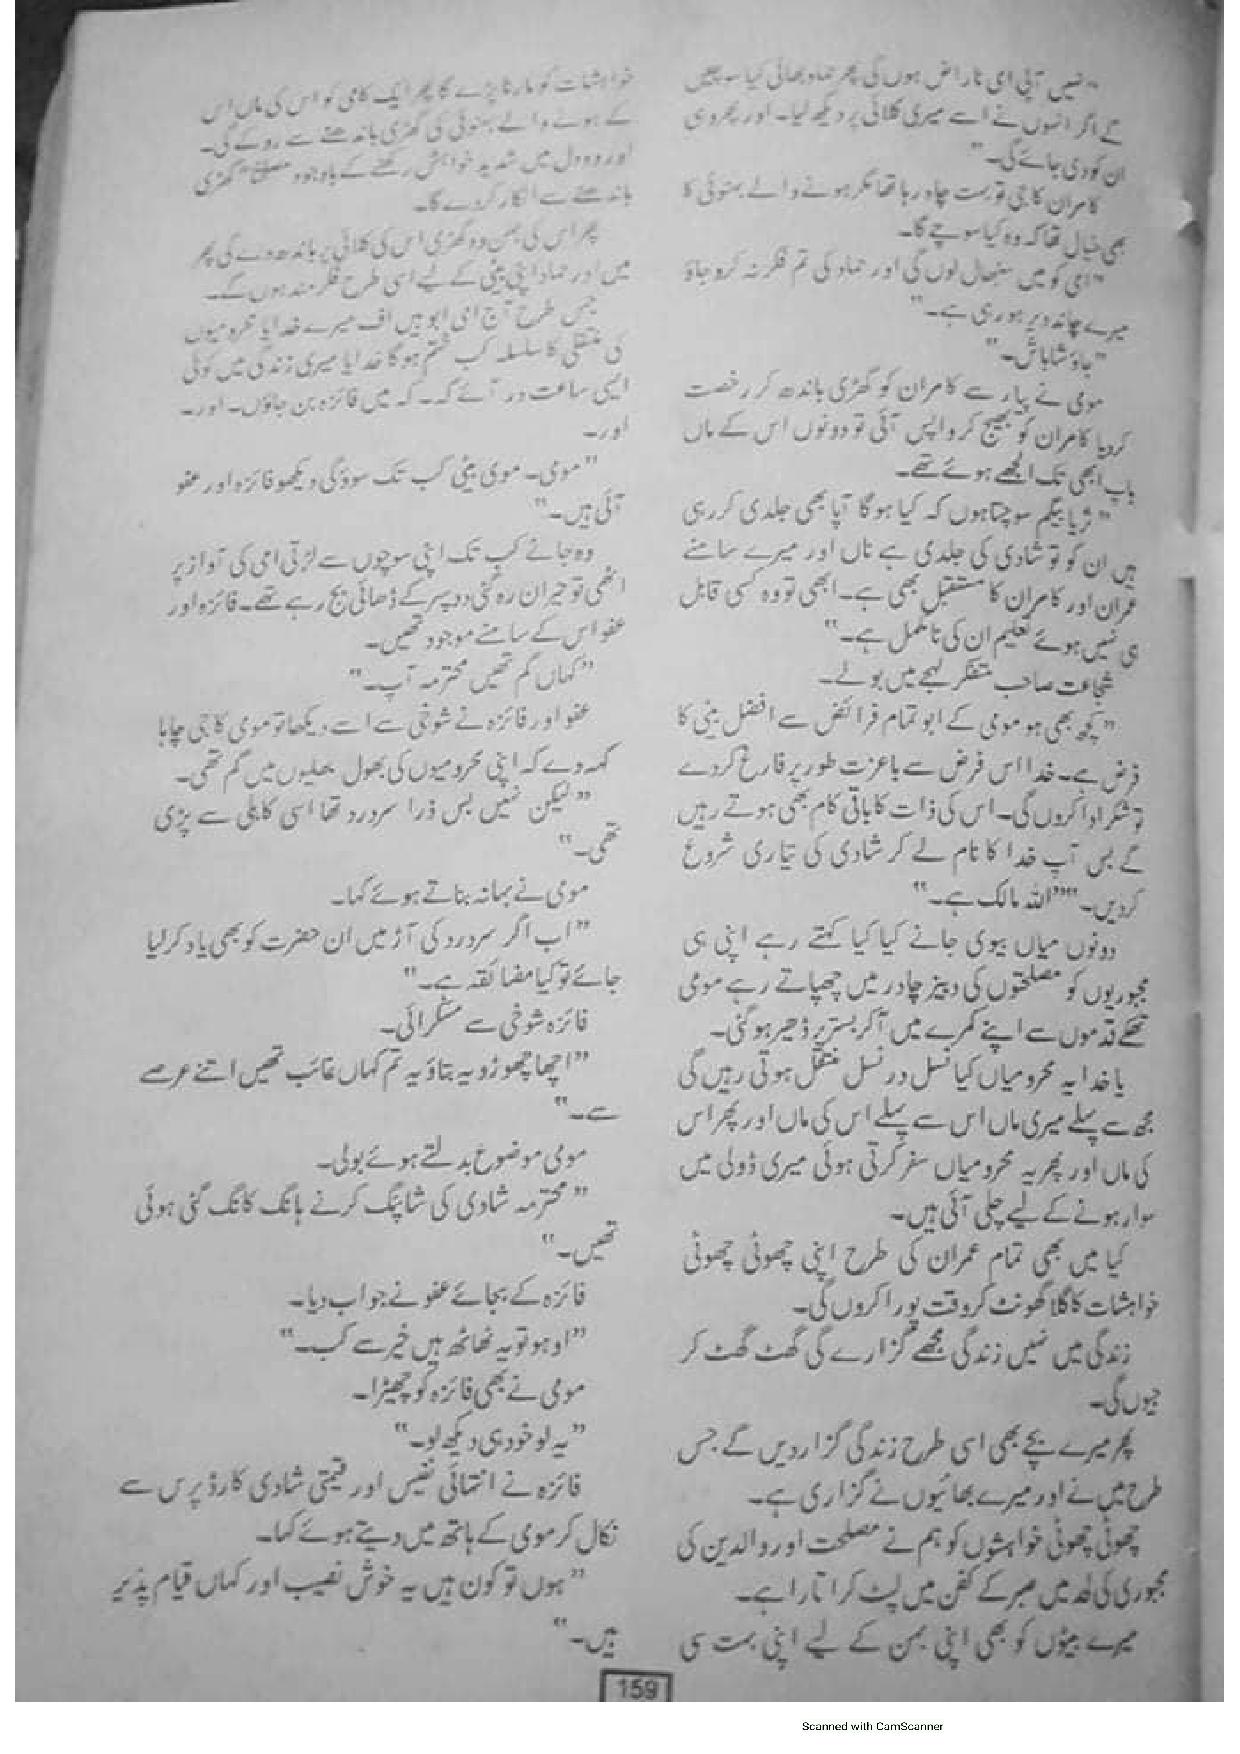 "نہیں آپی امی ناراض ہوں گی پھر حماد بھائی کیا سوچیں
گے اگر انہوں نے اسے میری کلائی پر دیکھ لیا۔ اور پھر وہی
ان کو دی جائے گی۔"
کامران کا جی تو بہت چاہ رہا تھا مگر ہونے والے بہنوئی کا
بھی خیال تھا کہ وہ کیا سوچے گا۔
"امی کو میں سنبھال لوں گی اور حماد کی تم فکر نہ کرو جاؤ
میرے چاند دیر ہو رہی ہے۔"
"جاؤ شاباش۔"
مومی نے پیار سے کامران کو گھڑی باندھ کر رخصت
کر دیا کامران کو بھیج کر واپس آئی تو دونوں اس کے ماں
باپ ابھی تک الجھے ہوئے تھے۔
"ثریا بیگم سوچتا ہوں کہ کیا ہو گا آپا بھی جلدی کر رہی
ہیں ان کو تو شادی کی جلدی ہے ناں اور میرے سامنے
عمران اور کامران کا مستقبل بھی ہے۔ ابھی تو وہ کسی قابل
ہی نہیں ہوئے تعلیم ان کی نامکمل ہے۔"
شجاعت صاحب متفکر لہجے میں بولے۔
"کچھ بھی ہو مومی کے ابو تمام فرائض سے افضل بیٹی کا
فرض ہے۔ خدا اس فرض سے باعزت طور پر فارغ کر دے
تو شکر ادا کروں گی۔ اس کی ذات کا باقی کام بھی ہوتے رہیں
گے بس آپ خدا کا نام لے کر شادی کی تیاری شروع
کر دیں۔" "اللہ مالک ہے۔"
دونوں میاں بیوی جانے کیا کیا کہتے رہے اپنی ہی
مجبوریوں کو مصلحتوں کی دبیز چادر میں چھپاتے رہے مومی
تھکے قدموں سے اپنے کمرے میں آ کر بستر پر ڈھیر ہو گئی۔
یا خدا یہ محرومیاں کیا نسل در نسل منتقل ہوتی رہیں گی
مجھ سے پہلے میری ماں اس سے پہلے اس کی ماں اور پھر اس
کی ماں اور پھر یہ محرومیاں سفر کرتی ہوئی میری ڈولی میں
سوار ہونے کے لیے چلی آئی ہیں۔
کیا میں بھی تمام عمر ان کی طرح اپنی چھوٹی چھوٹی
خواہشات کا گلا گھونٹ کر وقت پورا کروں گی۔
زندگی میں نہیں زندگی مجھے گزارے گی گھٹ گھٹ کر
جیوں گی۔
پھر میرے بچے بھی اسی طرح زندگی گزار دیں گے جس
طرح میں نے اور میرے بھائیوں نے گزاری ہے۔
چھوٹی چھوٹی خواہشوں کو ہم نے مصلحت اور والدین کی
مجبوری کی لحد میں صبر کے کفن میں لپٹ کر اتارا ہے۔
میرے بیٹوں کو بھی اپنی بہن کے لیے اپنی بہت سی
خواہشات کو مارنا پڑے گا پھر ایک کامی کو اس کی ماں اس
کے ہونے والے بہنوئی کی گھڑی باندھنے سے روکے گی۔
اور وہ دل میں شدید خواہش رکھنے کے باوجود مصلحتاً گھڑی
باندھنے سے انکار کر دے گا۔
پھر اس کی بہن وہ گھڑی اس کی کلائی پر باندھ دے گی پھر
میں اور حماد اپنی بیٹی کے لیے اسی طرح فکر مند ہوں گے۔
جس طرح آج امی ابو ہیں اف میرے خدایا محرومیوں
کی منتقلی کا سلسلہ کب ختم ہو گا خدایا میری زندگی میں کوئی
ایسی ساعت در آئے کہ۔ کہ میں فائزہ بن جاؤں۔ اور۔
اور۔
"مومی۔ مومی بیٹی کب تک سوؤ گی دیکھو فائزہ اور عفو
آئی ہیں۔"
وہ جانے کب تک اپنی سوچوں سے لڑتی امی کی آواز پر
اٹھی تو حیران رہ گئی دوپہر کے ڈھائی بج رہے تھے۔ فائزہ اور
عفو اس کے سامنے موجود تھیں۔
"کہاں گم تھیں محترمہ آپ۔"
عفو اور فائزہ نے شوخی سے اسے دیکھا تو مومی کا جی چاہا
کہہ دے کہ اپنی محرومیوں کی بھول بھلیوں میں گم تھی۔
"لیکن نہیں بس ذرا سر درد تھا اسی کاہلی سے پڑی
تھی۔"
مومی نے بہانہ بناتے ہوئے کہا۔
"اب اگر سر درد کی آڑ میں ان حضرت کو بھی یاد کر لیا
جائے تو کیا مضائقہ ہے۔"
فائزہ شوخی سے مسکرائی۔
"اچھا چھوڑو یہ بتاؤ یہ تم کہاں غائب تھیں اتنے عرصے
سے۔"
مومی موضوع بدلتے ہوئے بولی۔
"محترمہ شادی کی شاپنگ کرنے ہانگ کانگ گئی ہوئی
تھیں۔"
فائزہ کے بجائے عفو نے جواب دیا۔
"اوہو تو یہ ٹھاٹھ ہیں خیر سے کب۔"
مومی نے بھی فائزہ کو چھیڑا۔
"یہ لو خود ہی دیکھ لو۔"
فائزہ نے انتہائی نفیس اور قیمتی شادی کارڈ پرس سے
نکال کر مومی کے ہاتھ میں دیتے ہوئے کہا۔
"ہوں تو کون ہیں یہ خوش نصیب اور کہاں قیام پذیر
ہیں۔"
159
Scanned with CamScanner